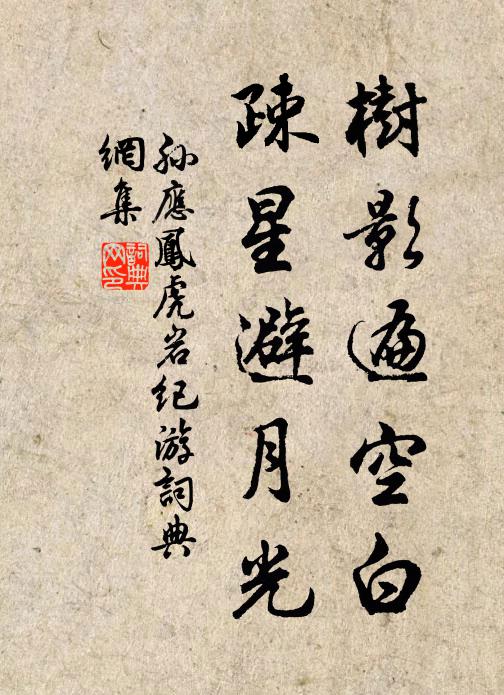 樹影遍空白
疎星避月光
孫應鳳虎岩纪游詞典
網集
詞典
网印